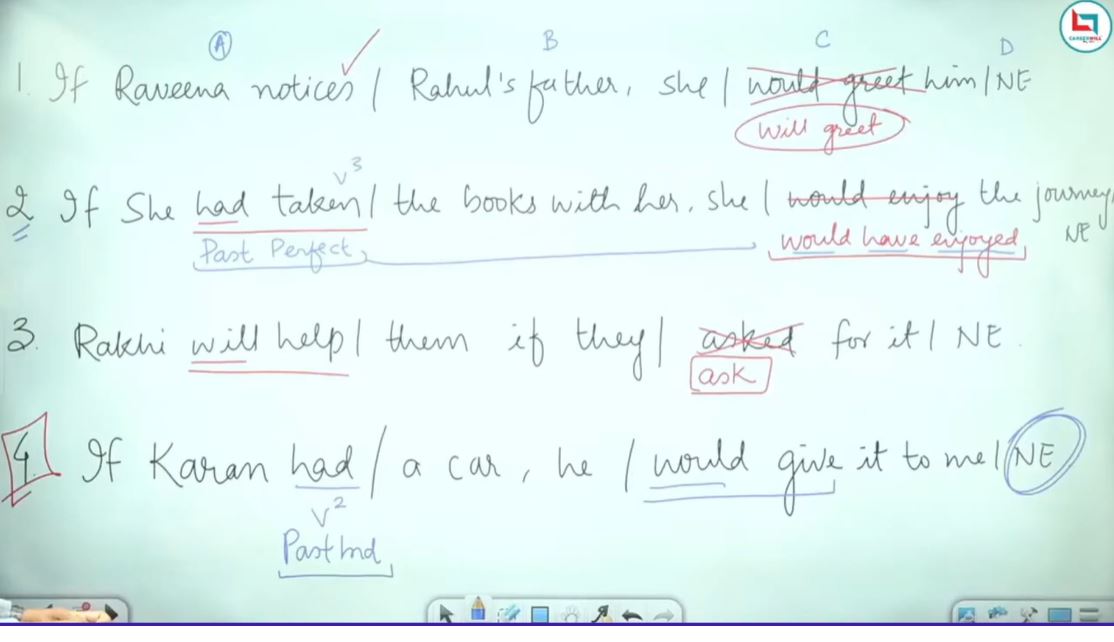 A B C D
1. If Raveena notices / Rahul's father, she / would greet him / NE
will greet
V3
2 If She had taken / the books with her, she / would enjoy the journey, NE
Past Perfect would have enjoyed
3. Rakhi will help / them if they / asked for it / NE.
ask
4. If Karan had / a car, he / would give it to me / NE
V2
Past Ind
CAREERWILL